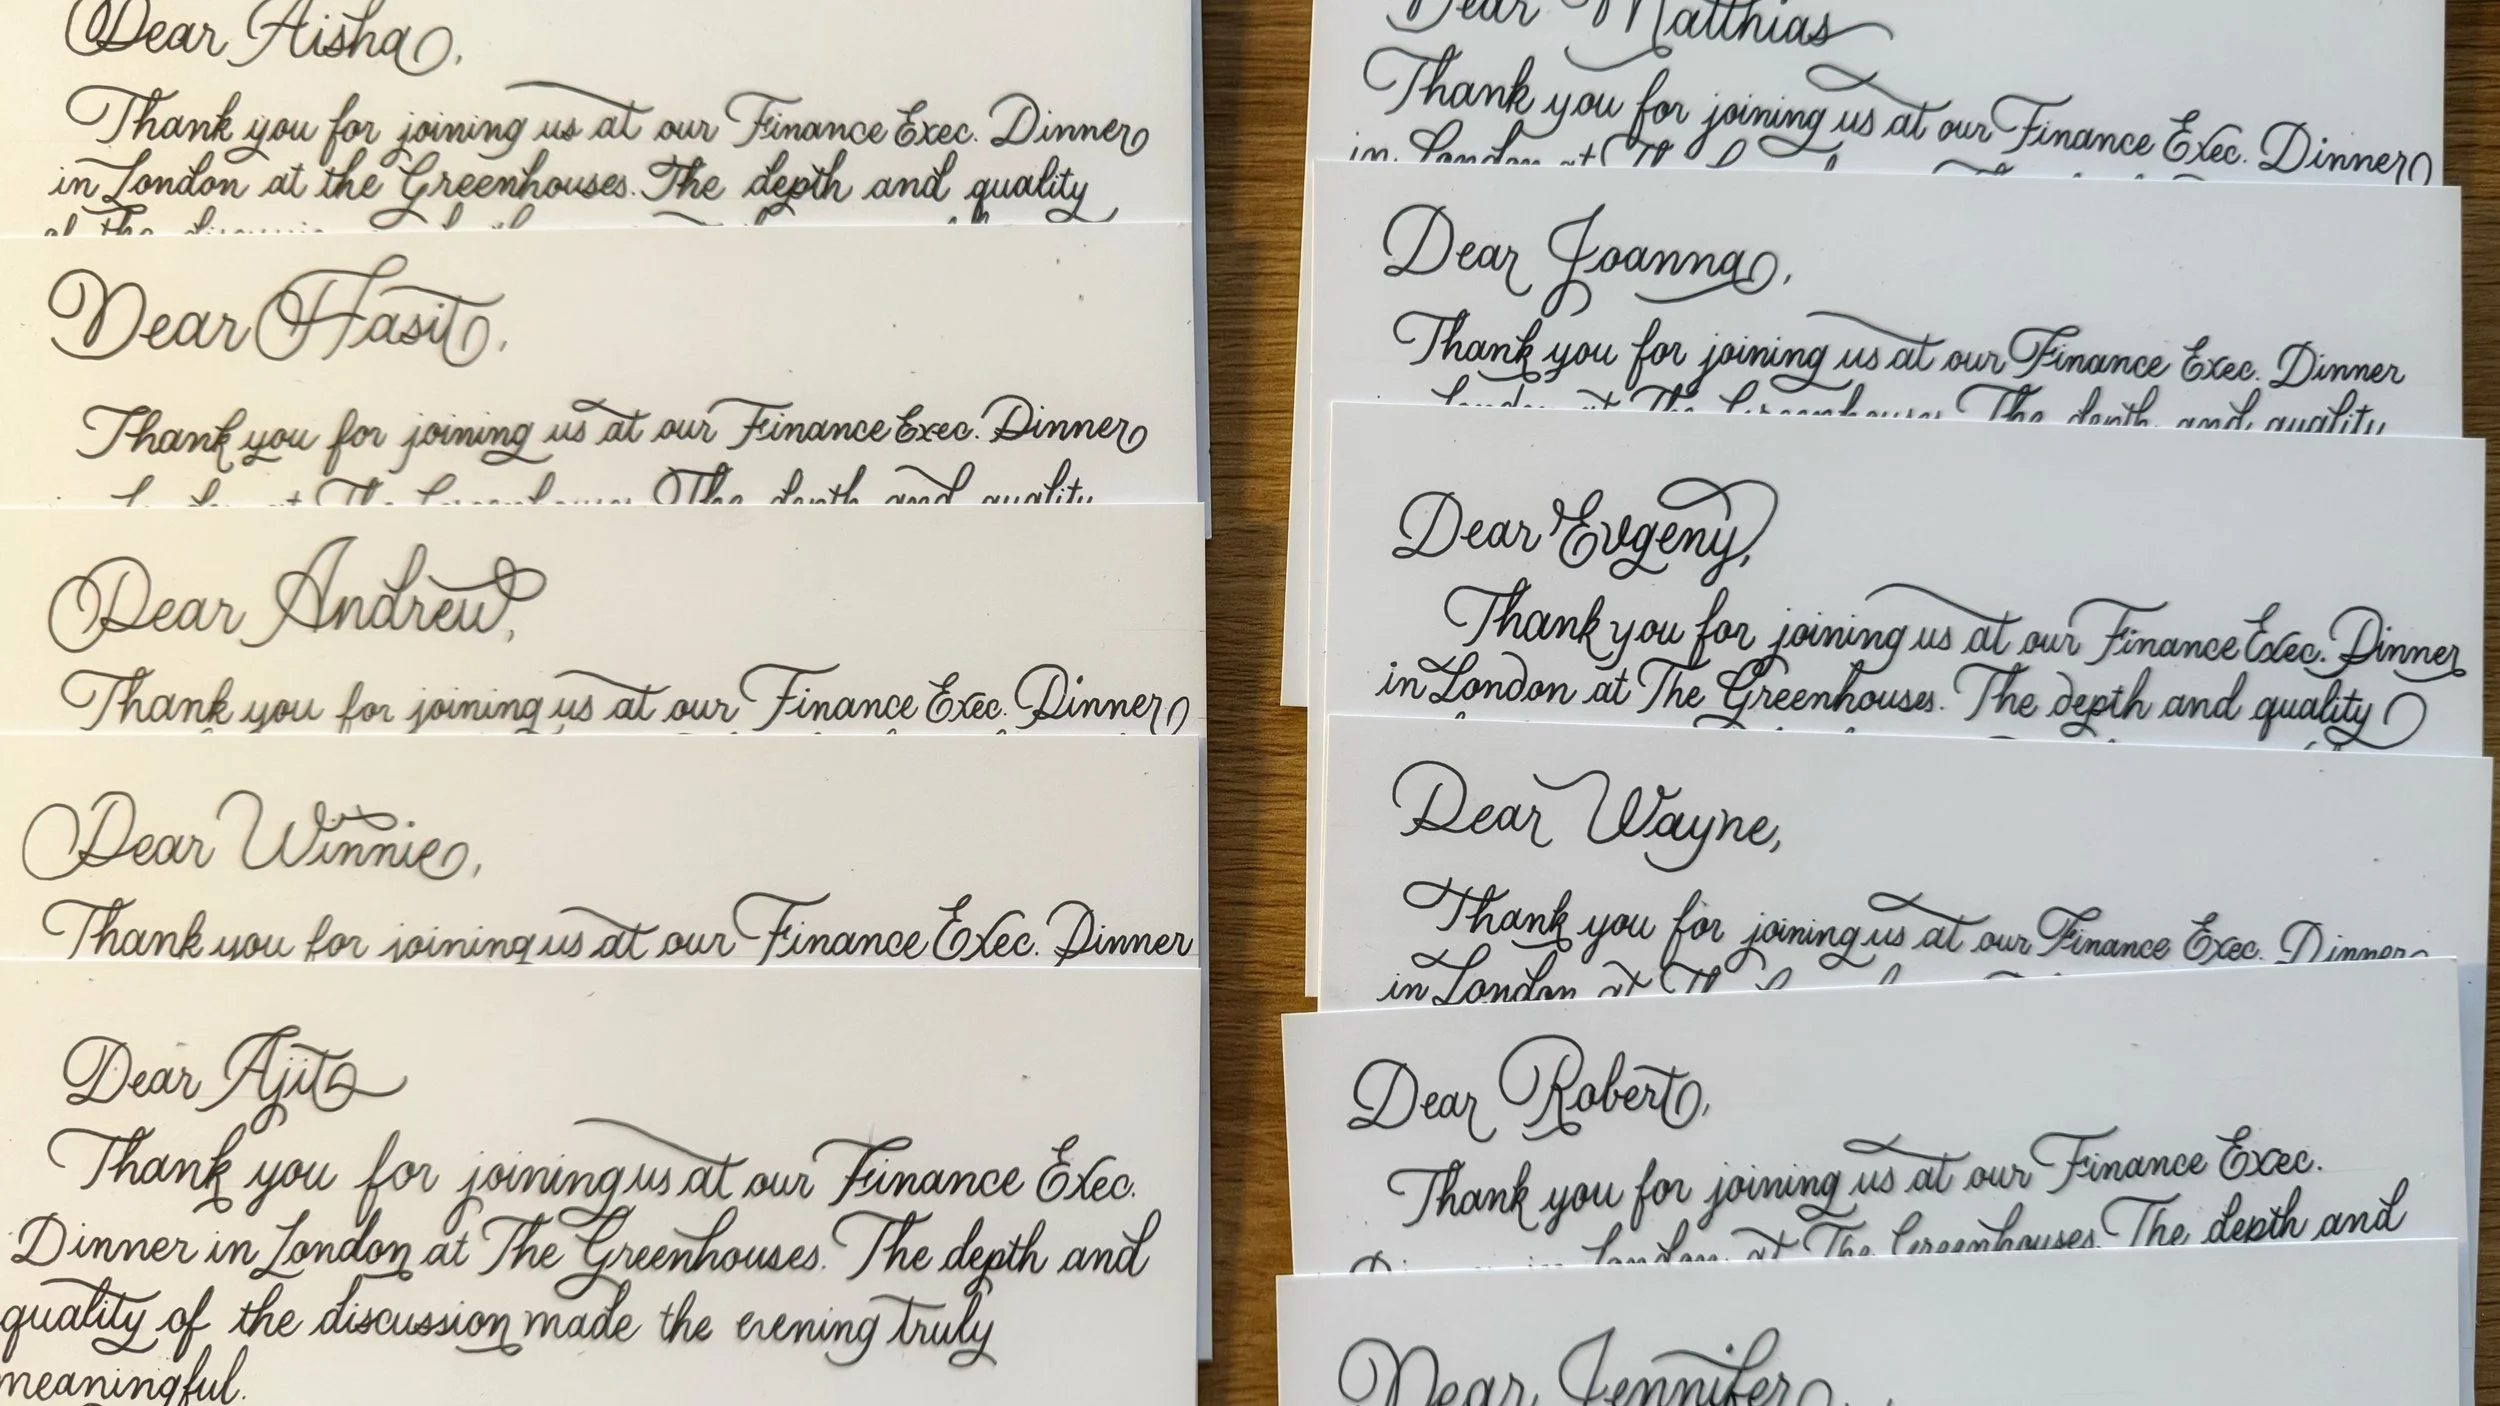 Dear Aisha,
Thank you for joining us at our Finance Exec. Dinner
in London at the Greenhouses. The depth and quality
of the
Dear Hasit,
Thank you for joining us at our Finance Exec. Dinner
London at The Greenhouses. The depth and quality
Dear Andrew,
Thank you for joining us at our Finance Exec. Dinner
Dear Winnie,
Thank you for joining us at our Finance Exec. Dinner
Dear Ajit
Thank you for joining us at our Finance Exec.
Dinner in London at The Greenhouses. The depth and
quality of the discussion made the evening truly
meaningful.
Dear Matthias
Thank you for joining us at our Finance Exec. Dinner
in London at
Dear Joanna,
Thank you for joining us at our Finance Exec. Dinner
London at The Greenhouses. The depth and quality
Dear Evgeny,
Thank you for joining us at our Finance Exec. Dinner
in London at The Greenhouses. The depth and quality
Dear Wayne,
Thank you for joining us at our Finance Exec. Dinner
in London at
Dear Robert,
Thank you for joining us at our Finance Exec.
London at The Greenhouses. The depth and
Dear Jennifer